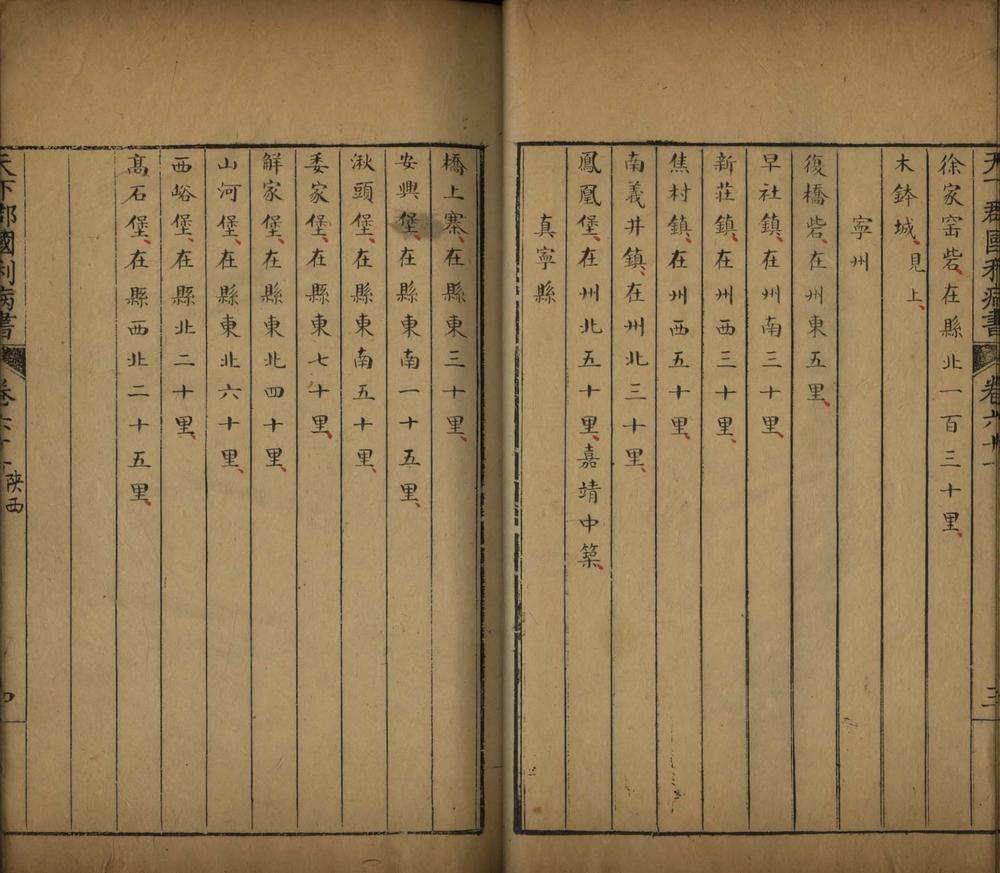 天下郡國利病書
卷六十
三
徐家窑砦、在縣北一百三十里、
木鉢城、見上、
寧州
復橋砦、在州東五里、
早社鎮、在州南三十里、
新莊鎮、在州西三十里、
焦村鎮、在州西五十里、
南義井鎮、在州北三十里、
鳳凰堡、在州北五十里、嘉靖中築、
真寧縣
橋上寨、在縣東三十里、
安興堡、在縣東南一十五里、
湫頭堡、在縣東南五十里、
委家堡、在縣東七十里、
解家堡、在縣東北四十里、
山河堡、在縣東北六十里、
西峪堡、在縣北二十里、
高石堡、在縣西北二十五里、
天下郡國利病書
卷六十
陝西